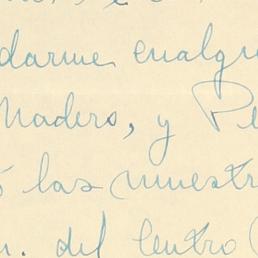 darme cualqu
Madero, y Pe
las muestr
del Centro